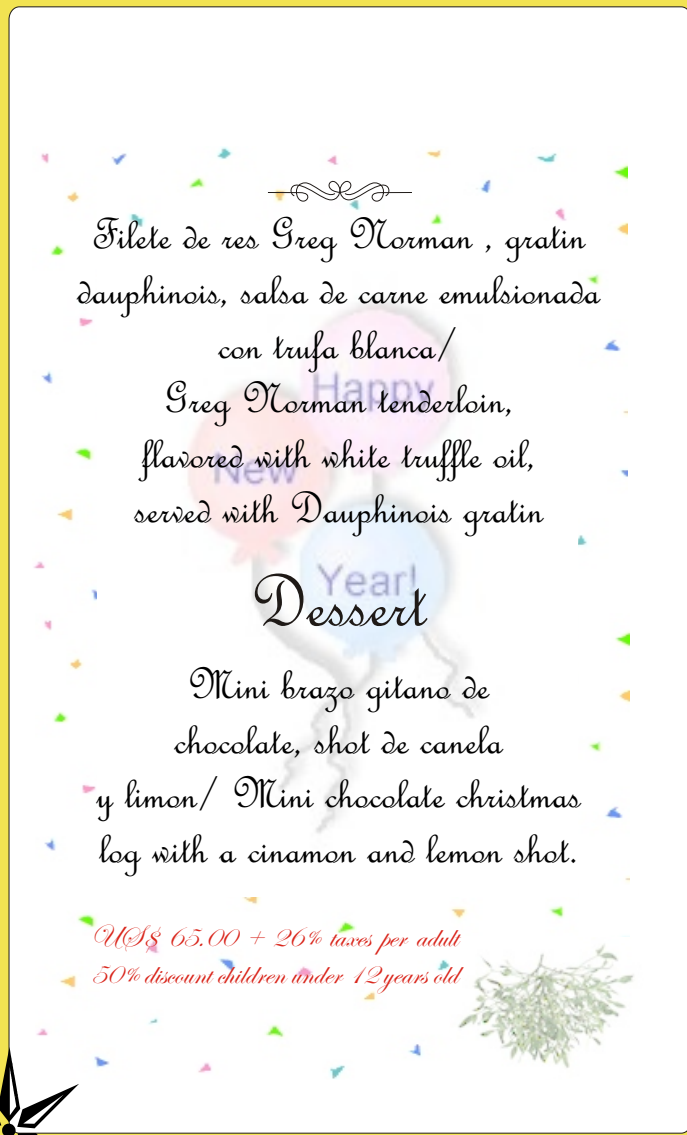 Filete de res Greg Norman , gratin
dauphinois, salsa de carne emulsionada
con trufa blanca/
Happy
Greg Norman tenderloin,
New
flavored with white truffle oil,
served with Dauphinois gratin
Year!
Dessert
Mini brazo gitano de
chocolate, shot de canela
y limon/ Mini chocolate christmas
log with a cinamon and lemon shot.
US$ 65.00 + 26% taxes per adult
50% discount children under 12 years old